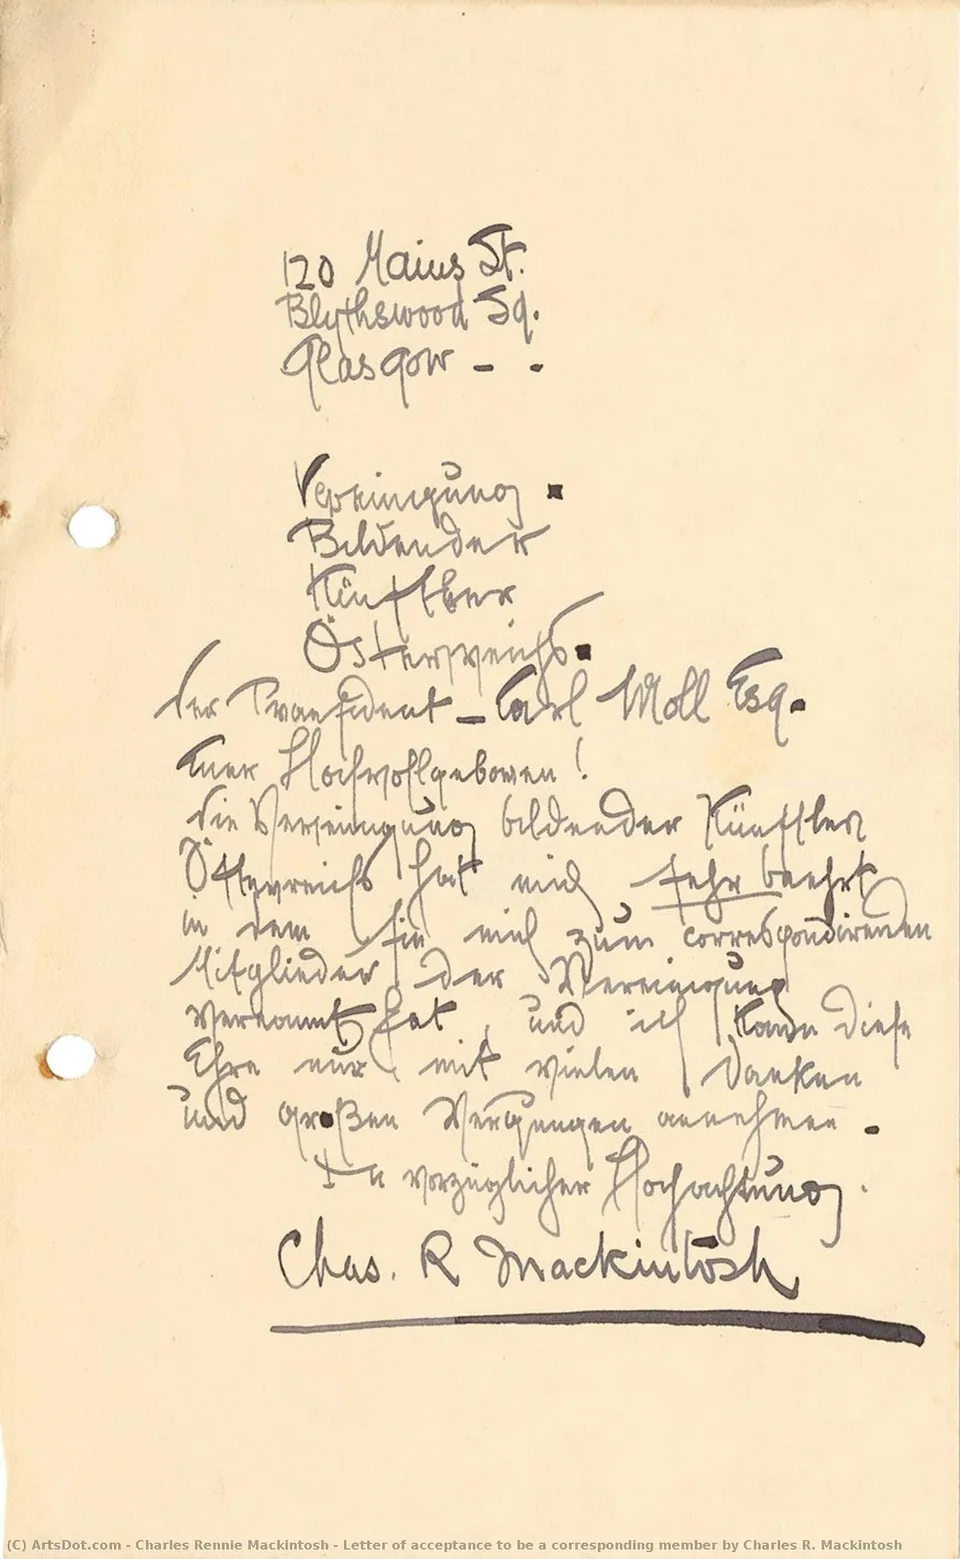 120 Mains St.
Blythswood Sq.
Glasgow - -
Vereinigung.
Bildender
Künstler
Österreichs.
Der Praesident - Carl Moll Esq.
Euer Hochwohlgeboren!
Die Vereinigung bildender Künstler
Österreichs hat mich sehr beehrt
in dem sie mich zum correspondirenden
Mitglieder der Vereinigung
vernannt hat, und ich kann diese
Ehre nur mit vielen Danken
und großen Vergungen annehmen -
In vorzüglicher Hochachtung.
Chas. R Mackintosh
(C) ArtsDot.com - Charles Rennie Mackintosh - Letter of acceptance to be a corresponding member by Charles R. Mackintosh